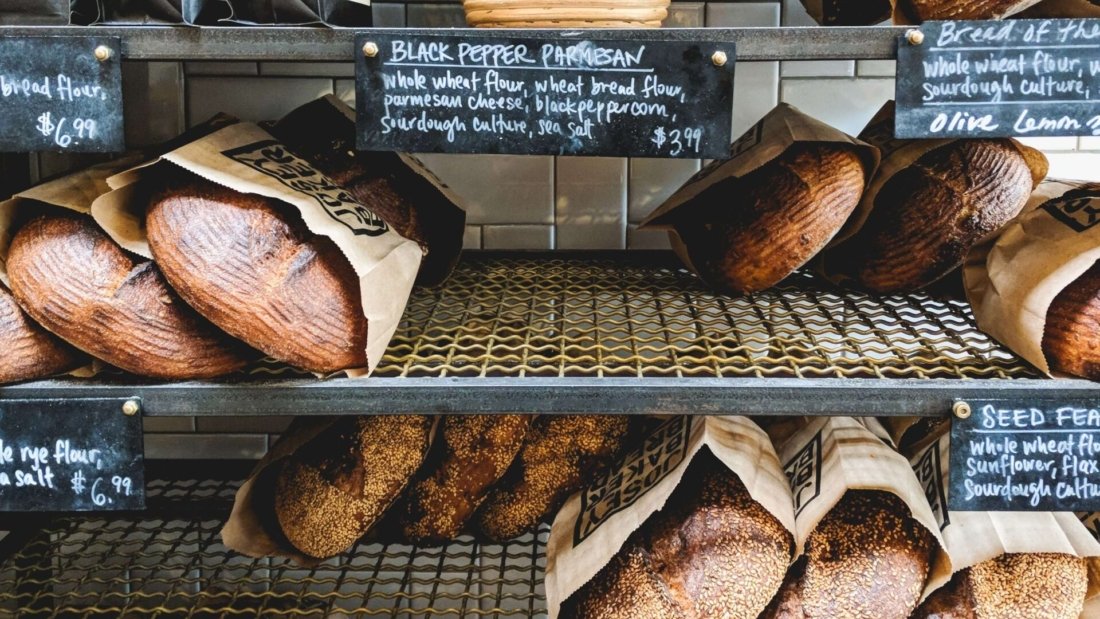 bread flour,
$6.99
BLACK PEPPER PARMESAN
whole wheat flour, wheat bread flour,
parmesan cheese, black peppercorn,
sourdough culture, sea salt
$3.99
Bread of the
whole wheat flour,
sourdough culture,
Olive Lemon
JOSEY
BAKER
rye flour,
salt $6.99
JOSEY
BAKER
SEED FEA
whole wheat flo
sunflower, flax
sourdough cultu